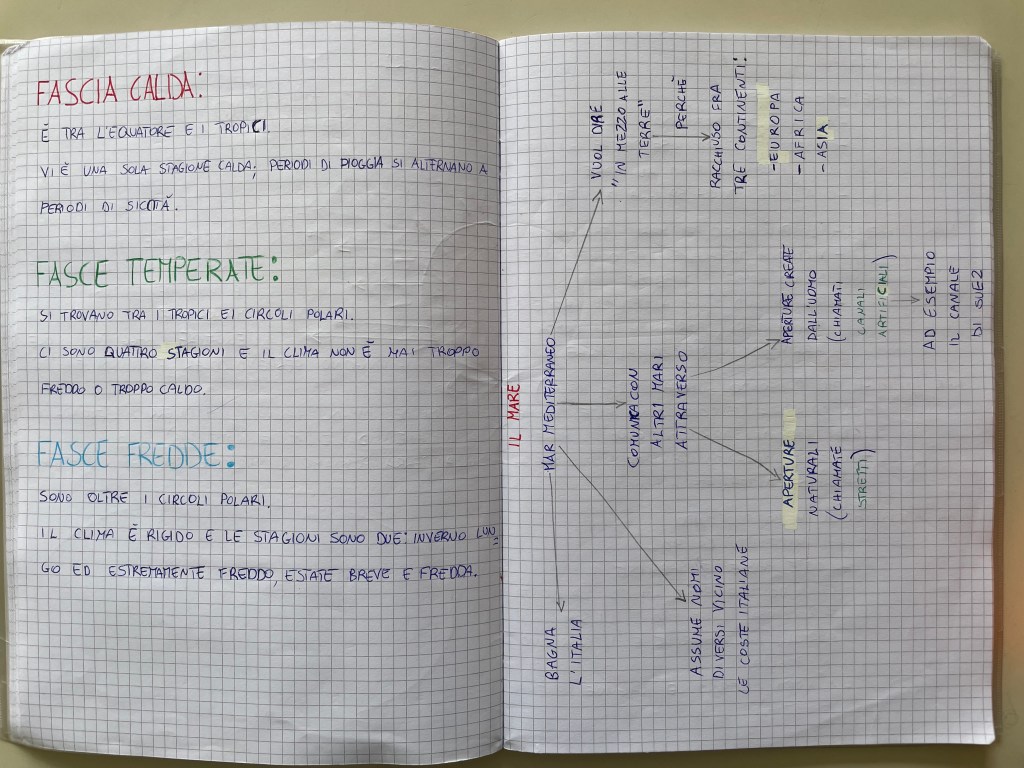 FASCIA CALDA:
È TRA L'EQUATORE E I TROPICI.
VI È UNA SOLA STAGIONE CALDA; PERIODI DI PIOGGIA SI ALTERNANO A
PERIODI DI SICCITÀ.
FASCE TEMPERATE:
SI TROVANO TRA I TROPICI E I CIRCOLI POLARI.
CI SONO QUATTRO STAGIONI E IL CLIMA NON È MAI TROPPO
FREDDO O TROPPO CALDO.
FASCE FREDDE:
SONO OLTRE I CIRCOLI POLARI.
IL CLIMA È RIGIDO E LE STAGIONI SONO DUE: INVERNO LUN=
GO ED ESTREMAMENTE FREDDO, ESTATE BREVE E FREDDA.
IL MARE
MAR MEDITERRANEO
BAGNA
L'ITALIA
ASSUME NOMI
DIVERSI VICINO
LE COSTE ITALIANE
COMUNICA CON
ALTRI MARI
ATTRAVERSO
APERTURE
NATURALI
(CHIAMATE
STRETTI)
APERTURE CREATE
DALL'UOMO
(CHIAMATI
CANALI
ARTIFICIALI)
AD ESEMPIO
IL CANALE
DI SUEZ
VUOL DIRE
"IN MEZZO ALLE
TERRE"
PERCHÈ
RACCHIUSO FRA
TRE CONTINENTI:
- EUROPA
- AFRICA
- ASIA